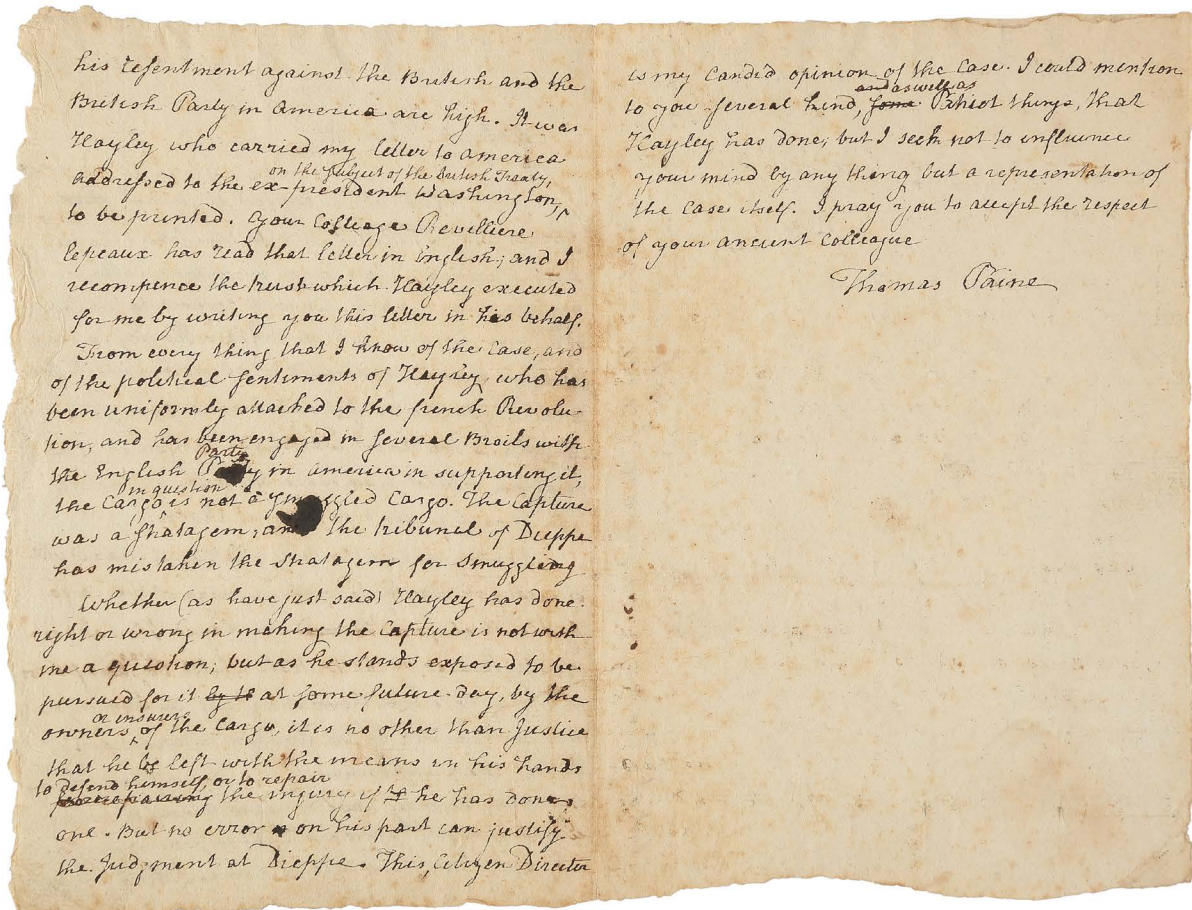 his resentment against the British and the
British Party in america are high. It was
Hayley who carried my letter to america
on the subject of the British Treaty,
addressed to the ex-president Washington,
to be printed. Your Colleage Revelliere
lepeaux has read that letter in English; and I
recompence the trust which Hayley executed
for me by writing you this letter in his behalf.
From every thing that I know of the Case, and
of the political sentiments of Hayley, who has
been uniformly attached to the french Revolu-
tion, and has been engaged in several Broils with
Party
the English Party in america in supporting it,
in question
the Cargo is not a smuggled Cargo. The Capture
was a stratagem, and the tribunal of Dieppe
has mistaken the stratagem for smuggling
Whether (as have just said) Hayley has done
right or wrong in making the Capture is not with
me a question; but as he stands exposed to be
pursued for it by th at some future day, by the
or insurers
owners of the Cargo, it is no other than Justice
that he be left with the means in his hands
to defend himself, or to repair
for repairing the injury if he has done
one. But no error on his part can justify
the Judgment at Dieppe. This, Citizen Director
is my candid opinion of the Case. I could mention
and as well as
to you several kind, some Patriot things, that
Hayley has done, but I seek not to influence
your mind by any thing but a representation of
the Case itself. I pray you to accept the respect
of your ancient Colleague
Thomas Paine